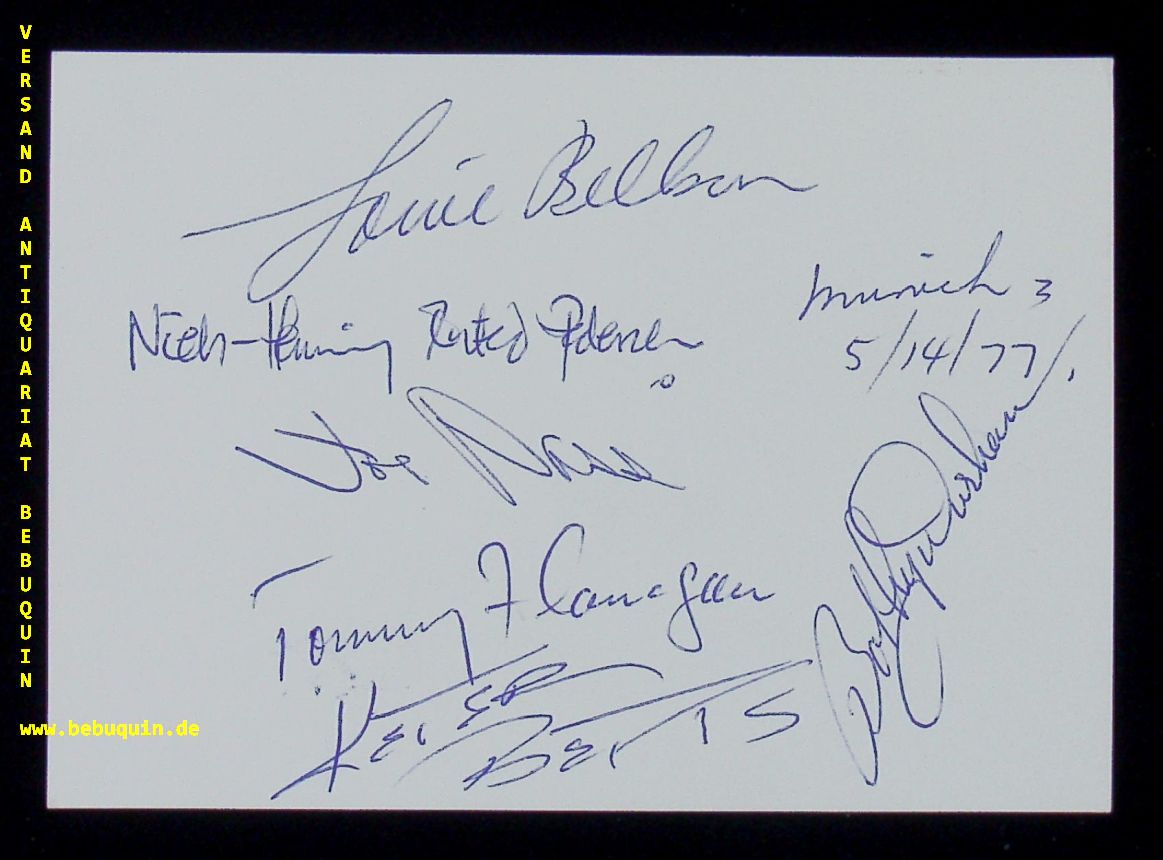 VERSAND ANTIQUARIAT BEBUQUIN
www.bebuquin.de
Louie Bellson
Niels-Henning Ørsted Pedersen
Munich 3
5/14/77.
Joe Pass
Tommy Flanagan
Keter Betts
Bobby Durham